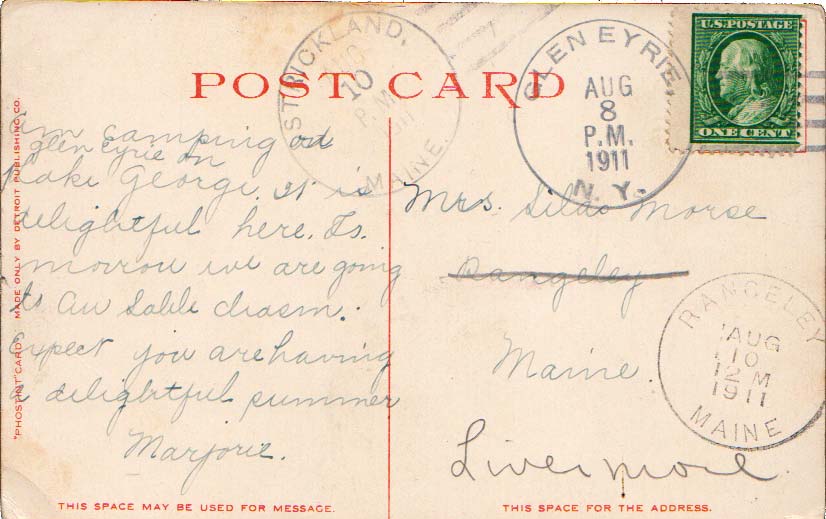 POST CARD
"PHOSTINT" CARD MADE ONLY BY DETROIT PUBLISHING CO.
STRICKLAND,
AUG
10
P.M.
1911
MAINE.
GLEN EYRIE,
AUG
8
P.M.
1911
N. Y.
U.S. POSTAGE
ONE CENT
am camping at
Glen Eyrie on
Lake George. It is
delightful here. To-
morrow we are going
to Au Sable chasm.
Expect you are having
a delightful summer
Marjorie.
Mrs. Morse
Rangeley
Maine.
Livermore.
RANGELEY
AUG
10
12 M
1911
MAINE
THIS SPACE MAY BE USED FOR MESSAGE.
THIS SPACE FOR THE ADDRESS.